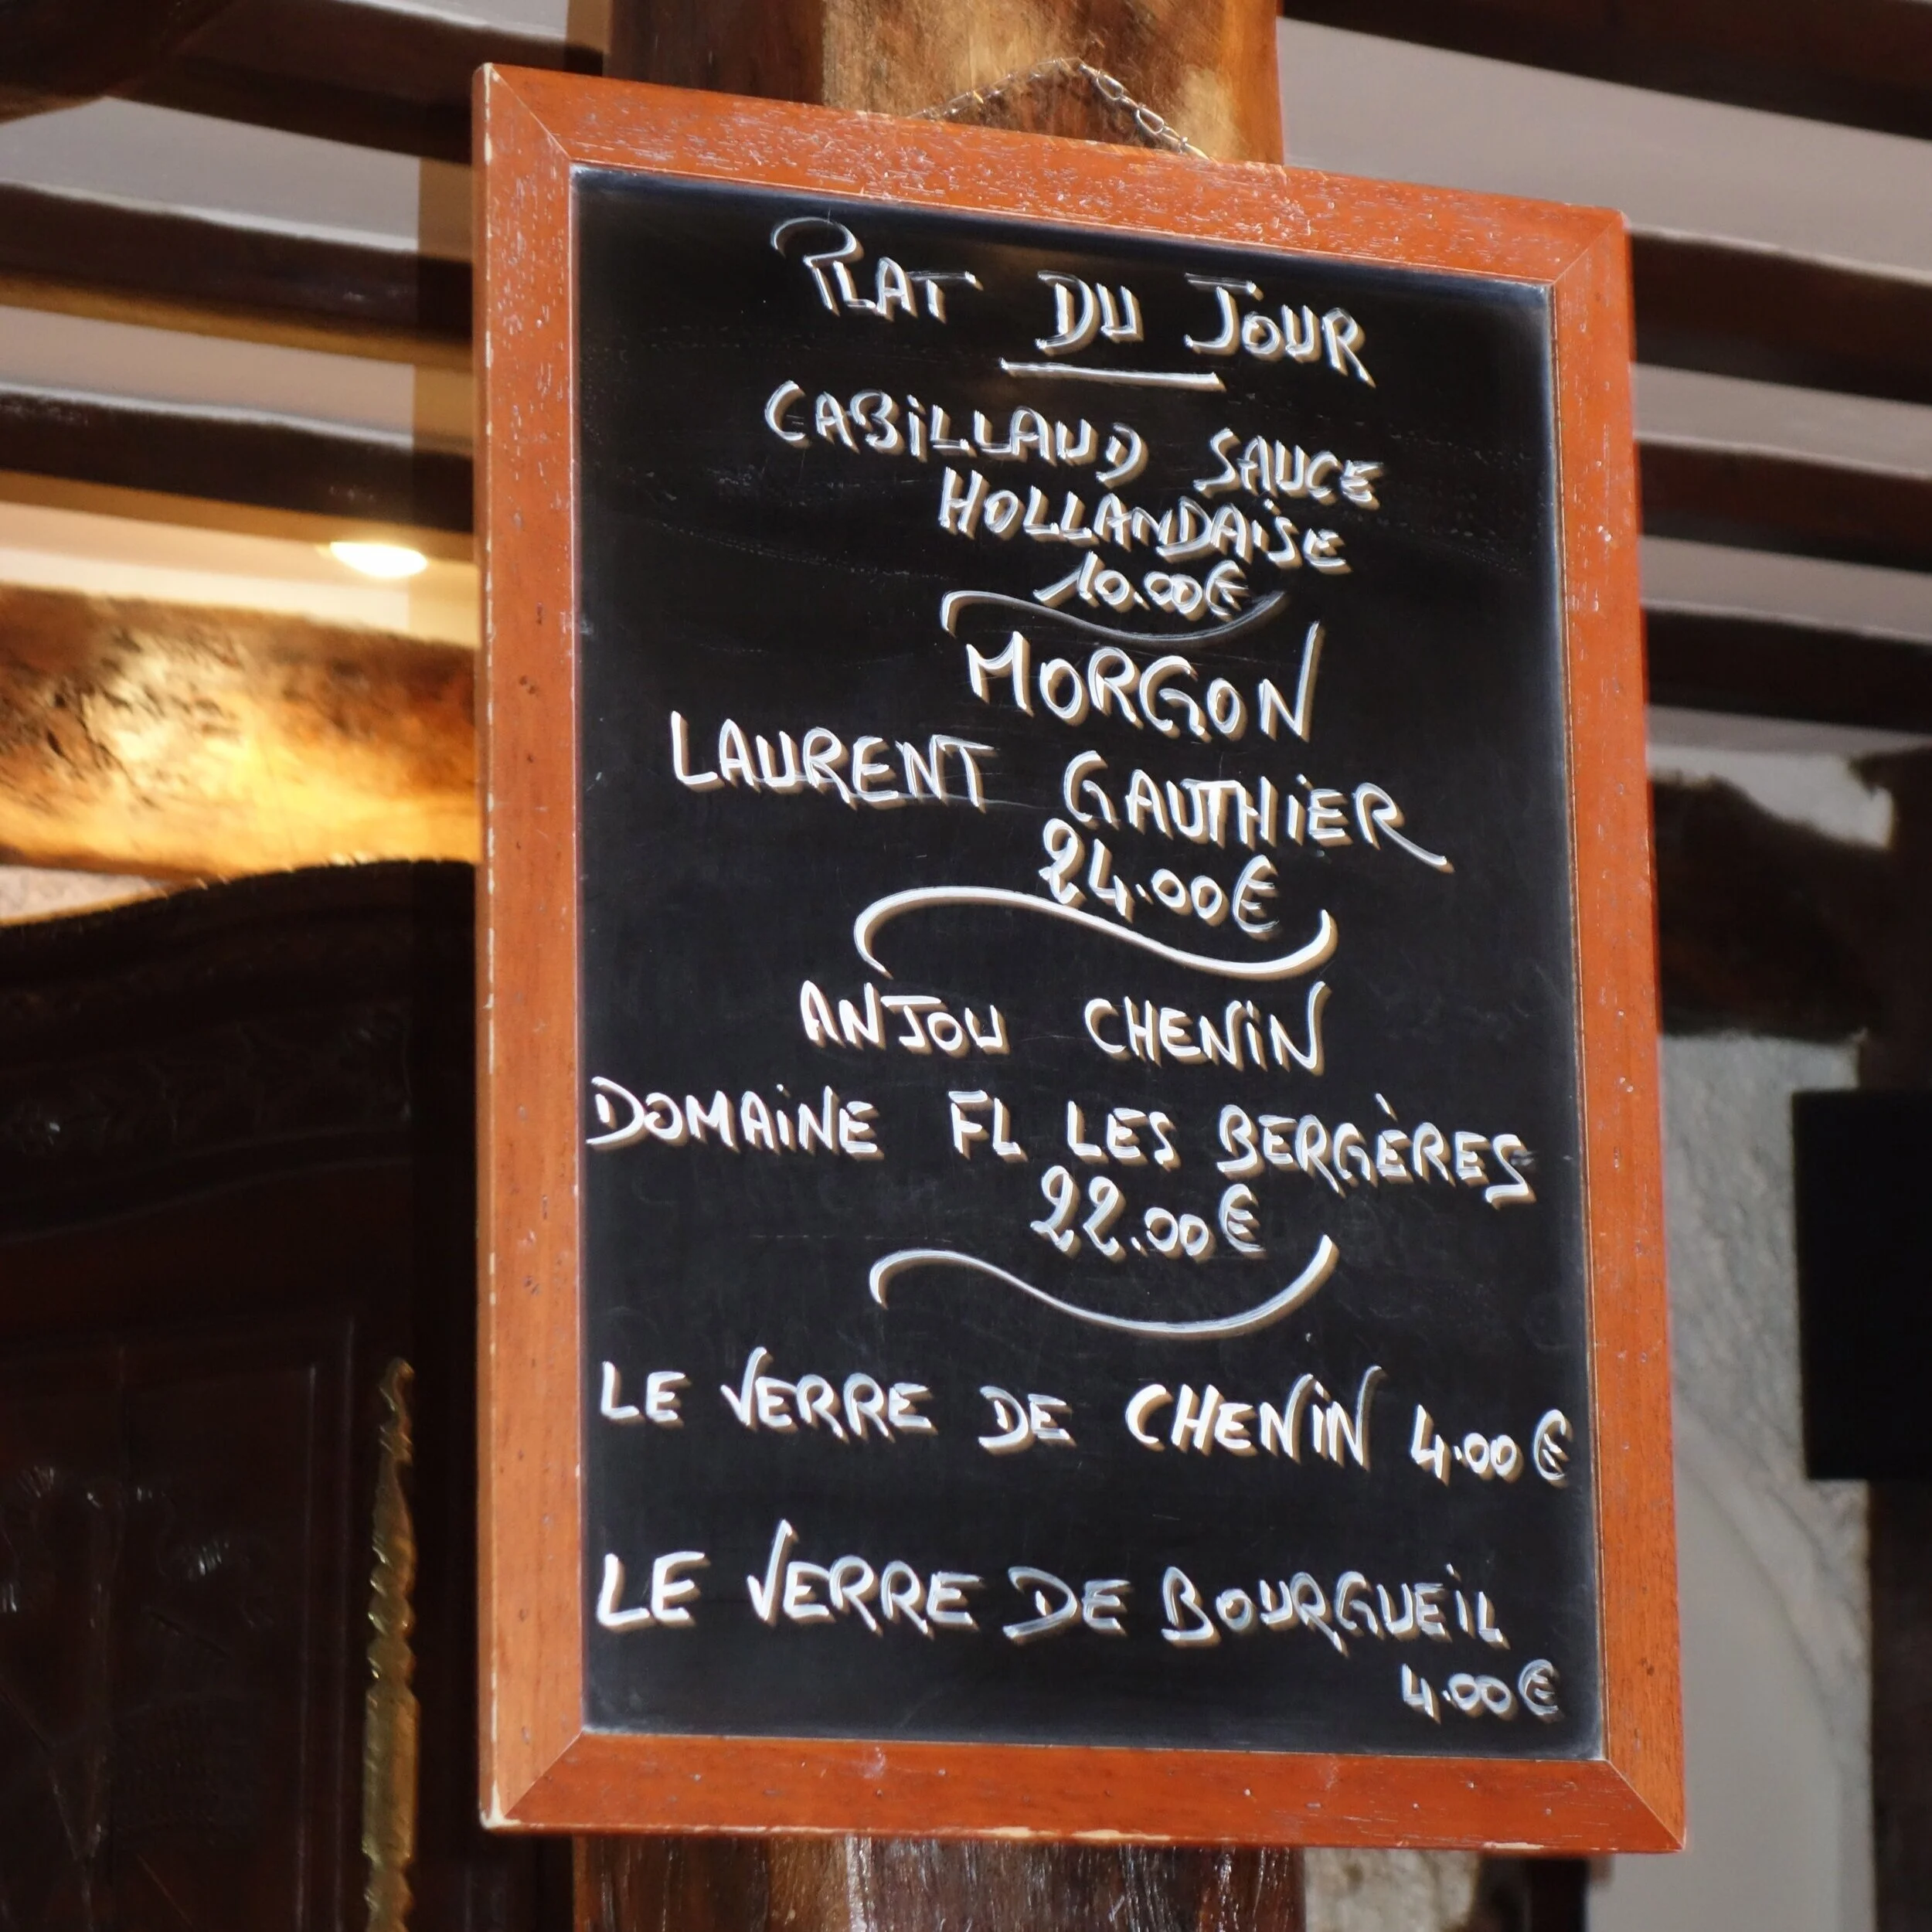 PLAT DU JOUR
CABILLAUD SAUCE
HOLLANDAISE
10.00€
MORGON
LAURENT GAUTHIER
24.00€
ANJOU CHENIN
DOMAINE FL LES BERGÈRES
22.00€
LE VERRE DE CHENIN 4.00€
LE VERRE DE BOURGUEIL
4.00€